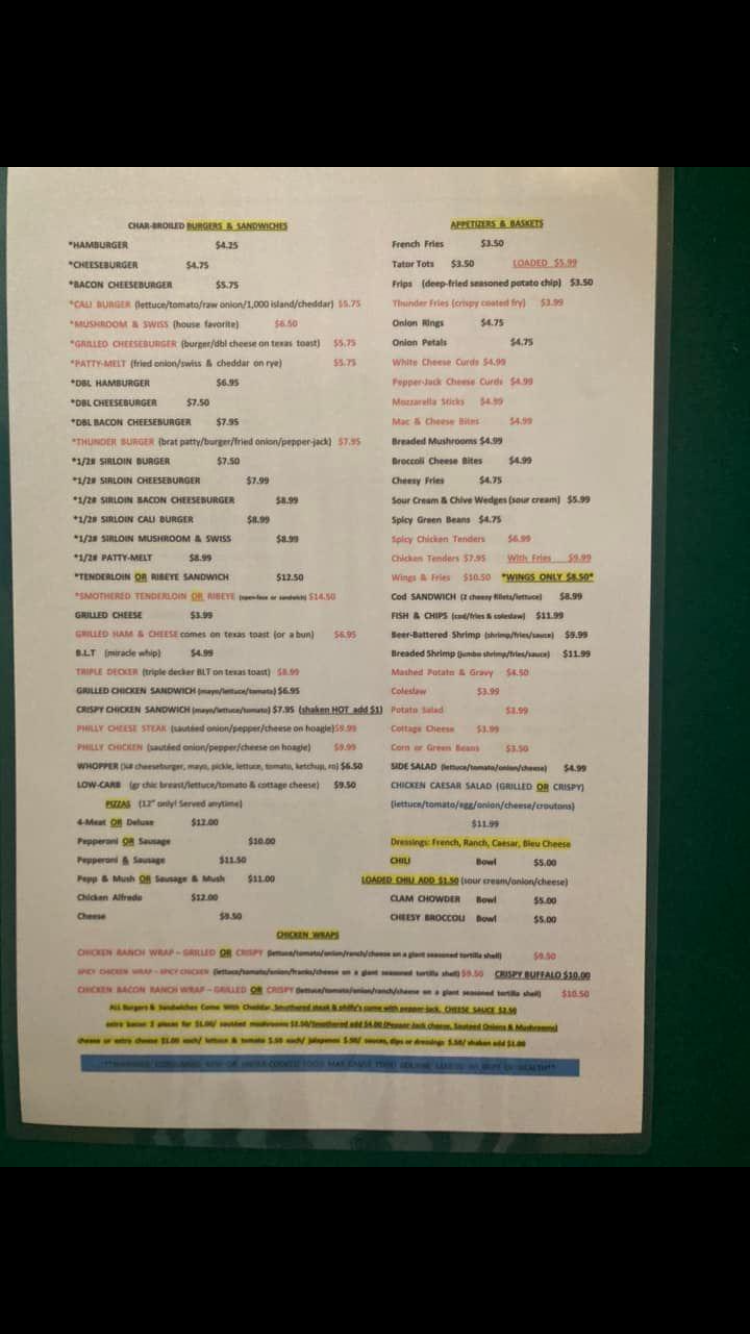 CHAR-BROILED BURGERS & SANDWICHES
*HAMBURGER $4.25
*CHEESEBURGER $4.75
*BACON CHEESEBURGER $5.75
*CALI BURGER (lettuce/tomato/raw onion/1,000 island/cheddar) $5.75
*MUSHROOM & SWISS (house favorite) $6.50
*GRILLED CHEESEBURGER (burger/dbl cheese on texas toast) $5.75
*PATTY-MELT (fried onion/swiss & cheddar on rye) $5.75
*DBL HAMBURGER $6.95
*DBL CHEESEBURGER $7.50
*DBL BACON CHEESEBURGER $7.95
*THUNDER BURGER (brat patty/burger/fried onion/pepper-jack) $7.95
*1/2# SIRLOIN BURGER $7.50
*1/2# SIRLOIN CHEESEBURGER $7.99
*1/2# SIRLOIN BACON CHEESEBURGER $8.99
*1/2# SIRLOIN CALI BURGER $8.99
*1/2# SIRLOIN MUSHROOM & SWISS $8.99
*1/2# PATTY-MELT $8.99
*TENDERLOIN OR RIBEYE SANDWICH $12.50
*SMOTHERED TENDERLOIN OR RIBEYE (open-face or sandwich) $14.50
GRILLED CHEESE $3.99
GRILLED HAM & CHEESE comes on texas toast (or a bun) $6.95
B.L.T (miracle whip) $4.99
TRIPLE DECKER (triple decker BLT on texas toast) $8.99
GRILLED CHICKEN SANDWICH (mayo/lettuce/tomato) $6.95
CRISPY CHICKEN SANDWICH (mayo/lettuce/tomato) $7.95 (shaken HOT add $1)
PHILLY CHEESE STEAK (sautéed onion/pepper/cheese on hoagie)$9.99
PHILLY CHICKEN (sautéed onion/pepper/cheese on hoagie) $9.99
WHOPPER (¼# cheeseburger, mayo, pickle, lettuce, tomato, ketchup, ro) $6.50
LOW-CARB (gr chic breast/lettuce/tomato & cottage cheese) $9.50
PIZZAS (12" only! Served anytime)
4-Meat OR Deluxe $12.00
Pepperoni OR Sausage $10.00
Pepperoni & Sausage $11.50
Pepp & Mush OR Sausage & Mush $11.00
Chicken Alfredo $12.00
Cheese $9.50
APPETIZERS & BASKETS
French Fries $3.50
Tator Tots $3.50 LOADED $5.99
Frips (deep-fried seasoned potato chip) $3.50
Thunder Fries (crispy coated fry) $3.99
Onion Rings $4.75
Onion Petals $4.75
White Cheese Curds $4.99
Pepper-Jack Cheese Curds $4.99
Mozzarella Sticks $4.99
Mac & Cheese Bites $4.99
Breaded Mushrooms $4.99
Broccoli Cheese Bites $4.99
Cheesy Fries $4.75
Sour Cream & Chive Wedges (sour cream) $5.99
Spicy Green Beans $4.75
Spicy Chicken Tenders $6.99
Chicken Tenders $7.95 With Fries $9.99
Wings & Fries $10.50 *WINGS ONLY $8.50*
Cod SANDWICH (2 cheesy fillets/lettuce) $8.99
FISH & CHIPS (cod/fries & coleslaw) $11.99
Beer-Battered Shrimp (shrimp/fries/sauce) $9.99
Breaded Shrimp (jumbo shrimp/fries/sauce) $11.99
Mashed Potato & Gravy $4.50
Coleslaw $3.99
Potato Salad $3.99
Cottage Cheese $3.99
Corn or Green Beans $3.50
SIDE SALAD (lettuce/tomato/onion/cheese) $4.99
CHICKEN CAESAR SALAD (GRILLED OR CRISPY)
(lettuce/tomato/egg/onion/cheese/croutons)
$11.99
Dressings: French, Ranch, Caesar, Bleu Cheese
CHILI Bowl $5.00
LOADED CHILI ADD $1.50 (sour cream/onion/cheese)
CLAM CHOWDER Bowl $5.00
CHEESY BROCCOLI Bowl $5.00
CHICKEN WRAPS
CHICKEN RANCH WRAP - GRILLED OR CRISPY (lettuce/tomato/onion/ranch/cheese on a giant seasoned tortilla shell) $9.50
SPICY CHICKEN WRAP - SPICY CHICKEN (lettuce/tomato/onion/franks/cheese on a giant seasoned tortilla shell) $9.50 CRISPY BUFFALO $10.00
CHICKEN BACON RANCH WRAP - GRILLED OR CRISPY (lettuce/tomato/onion/ranch/cheese on a giant seasoned tortilla shell) $10.50
ALL Burgers & Sandwiches Come With Cheddar. Smothered steak & philly's come with pepper-jack. CHEESE SAUCE $2.50
extra bacon 2 pieces for $1.00/ sautéed mushrooms $1.50/Smothered add $4.00 (Pepper Jack cheese, Sauteed Onions & Mushrooms)
cheese or extra cheese $1.00 each/ lettuce & tomato $.50 each/ jalapenos $.50/ sauces, dips or dressings $.50/ shaken add $1.00